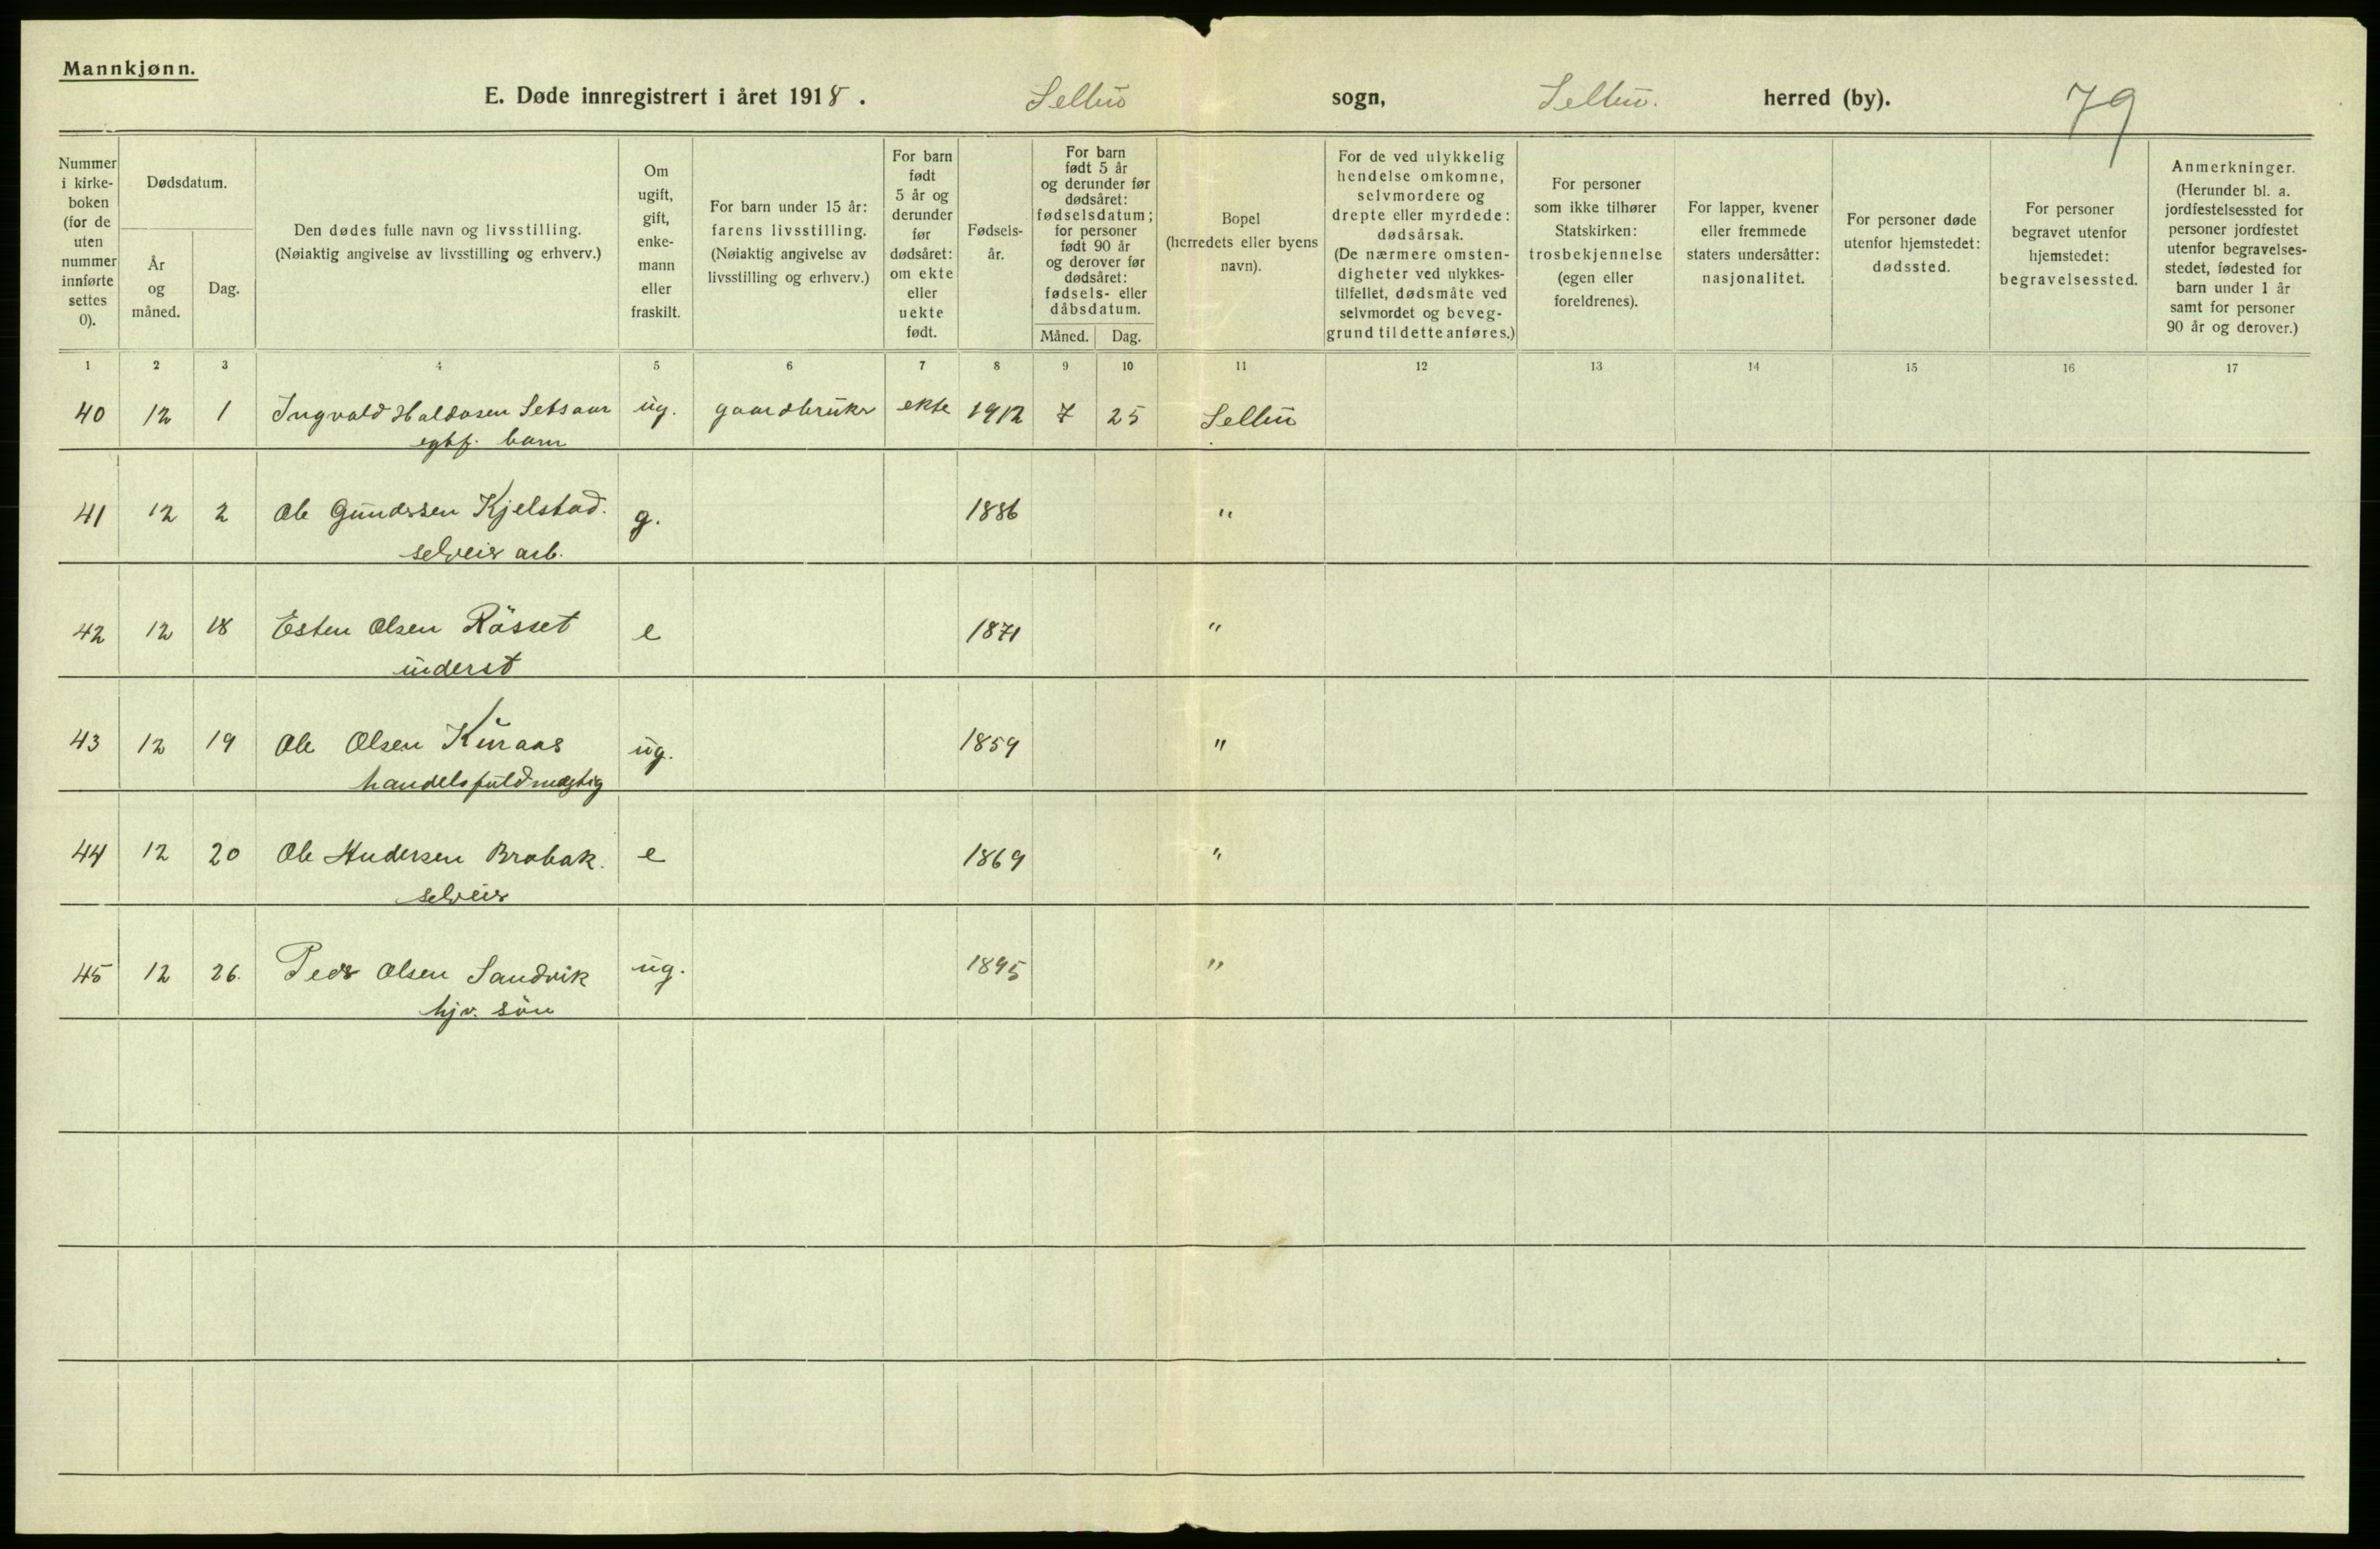 Mannkjønn.
E. Døde innregistrert i året 1918. Selbu sogn, Selbu. herred (by). 79
Nummer
i kirke-
boken
(for de
uten
nummer
innførte
settes
0).
Dødsdatum.
År
og
måned.
Dag.
Den dødes fulle navn og livsstilling.
(Nøiaktig angivelse av livsstilling og erhverv.)
Om
ugift,
gift,
enke-
mann
eller
fraskilt.
For barn under 15 år:
farens livsstilling.
(Nøiaktig angivelse av
livsstilling og erhverv.)
For barn
født
5 år og
derunder
før
dødsåret:
om ekte
eller
uekte
født.
Fødsels-
år.
For barn
født 5 år
og derunder før
dødsåret:
fødselsdatum;
for personer
født 90 år
og derover før
dødsåret:
fødsels- eller
dåbsdatum.
Måned. Dag.
Bopel
(herredets eller byens
navn).
For de ved ulykkelig
hendelse omkomne,
selvmordere og
drepte eller myrdede:
dødsårsak.
(De nærmere omsten-
digheter ved ulykkes-
tilfellet, dødsmåte ved
selvmordet og beveg-
grund til dette anføres.)
For personer
som ikke tilhører
Statskirken:
trosbekjennelse
(egen eller
foreldrenes).
For lapper, kvener
eller fremmede
staters undersåtter:
nasjonalitet.
For personer døde
utenfor hjemstedet:
dødssted.
For personer
begravet utenfor
hjemstedet:
begravelsessted.
Anmerkninger.
(Herunder bl. a.
jordfestelsessted for
personer jordfestet
utenfor begravelses-
stedet, fødested for
barn under 1 år
samt for personer
90 år og derover.)
1 2 3 4 5 6 7 8 9 10 11 12 13 14 15 16 17
40 12 1 Ingvald Haldosen Setsaas ug. gaardbruker ekte 1912 7 25 Selbu
egtf. barn
41 12 2 Ole Gundersen Kjelstad. g. 1886 "
selveier arb.
42 12 18 Esten Olsen Rösset e 1871 "
inderst
43 12 19 Ole Olsen Kuraas ug. 1859 "
handelsfuldmægtig
44 12 20 Ole Andersen Brobak. e 1869 "
selveier
45 12 26. Peder Olsen Sandvik ug. 1895 "
hjv. sön